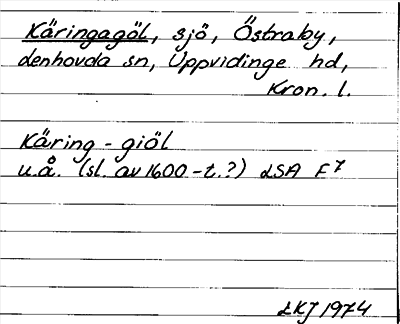 Käringagöl, sjö, Östraby,
denhovda sn, Uppvidinge hd,
Kron. l.
Käring-giöl
u.å. (sl. av 1600-t.?) LSA F7
LKJ 1974